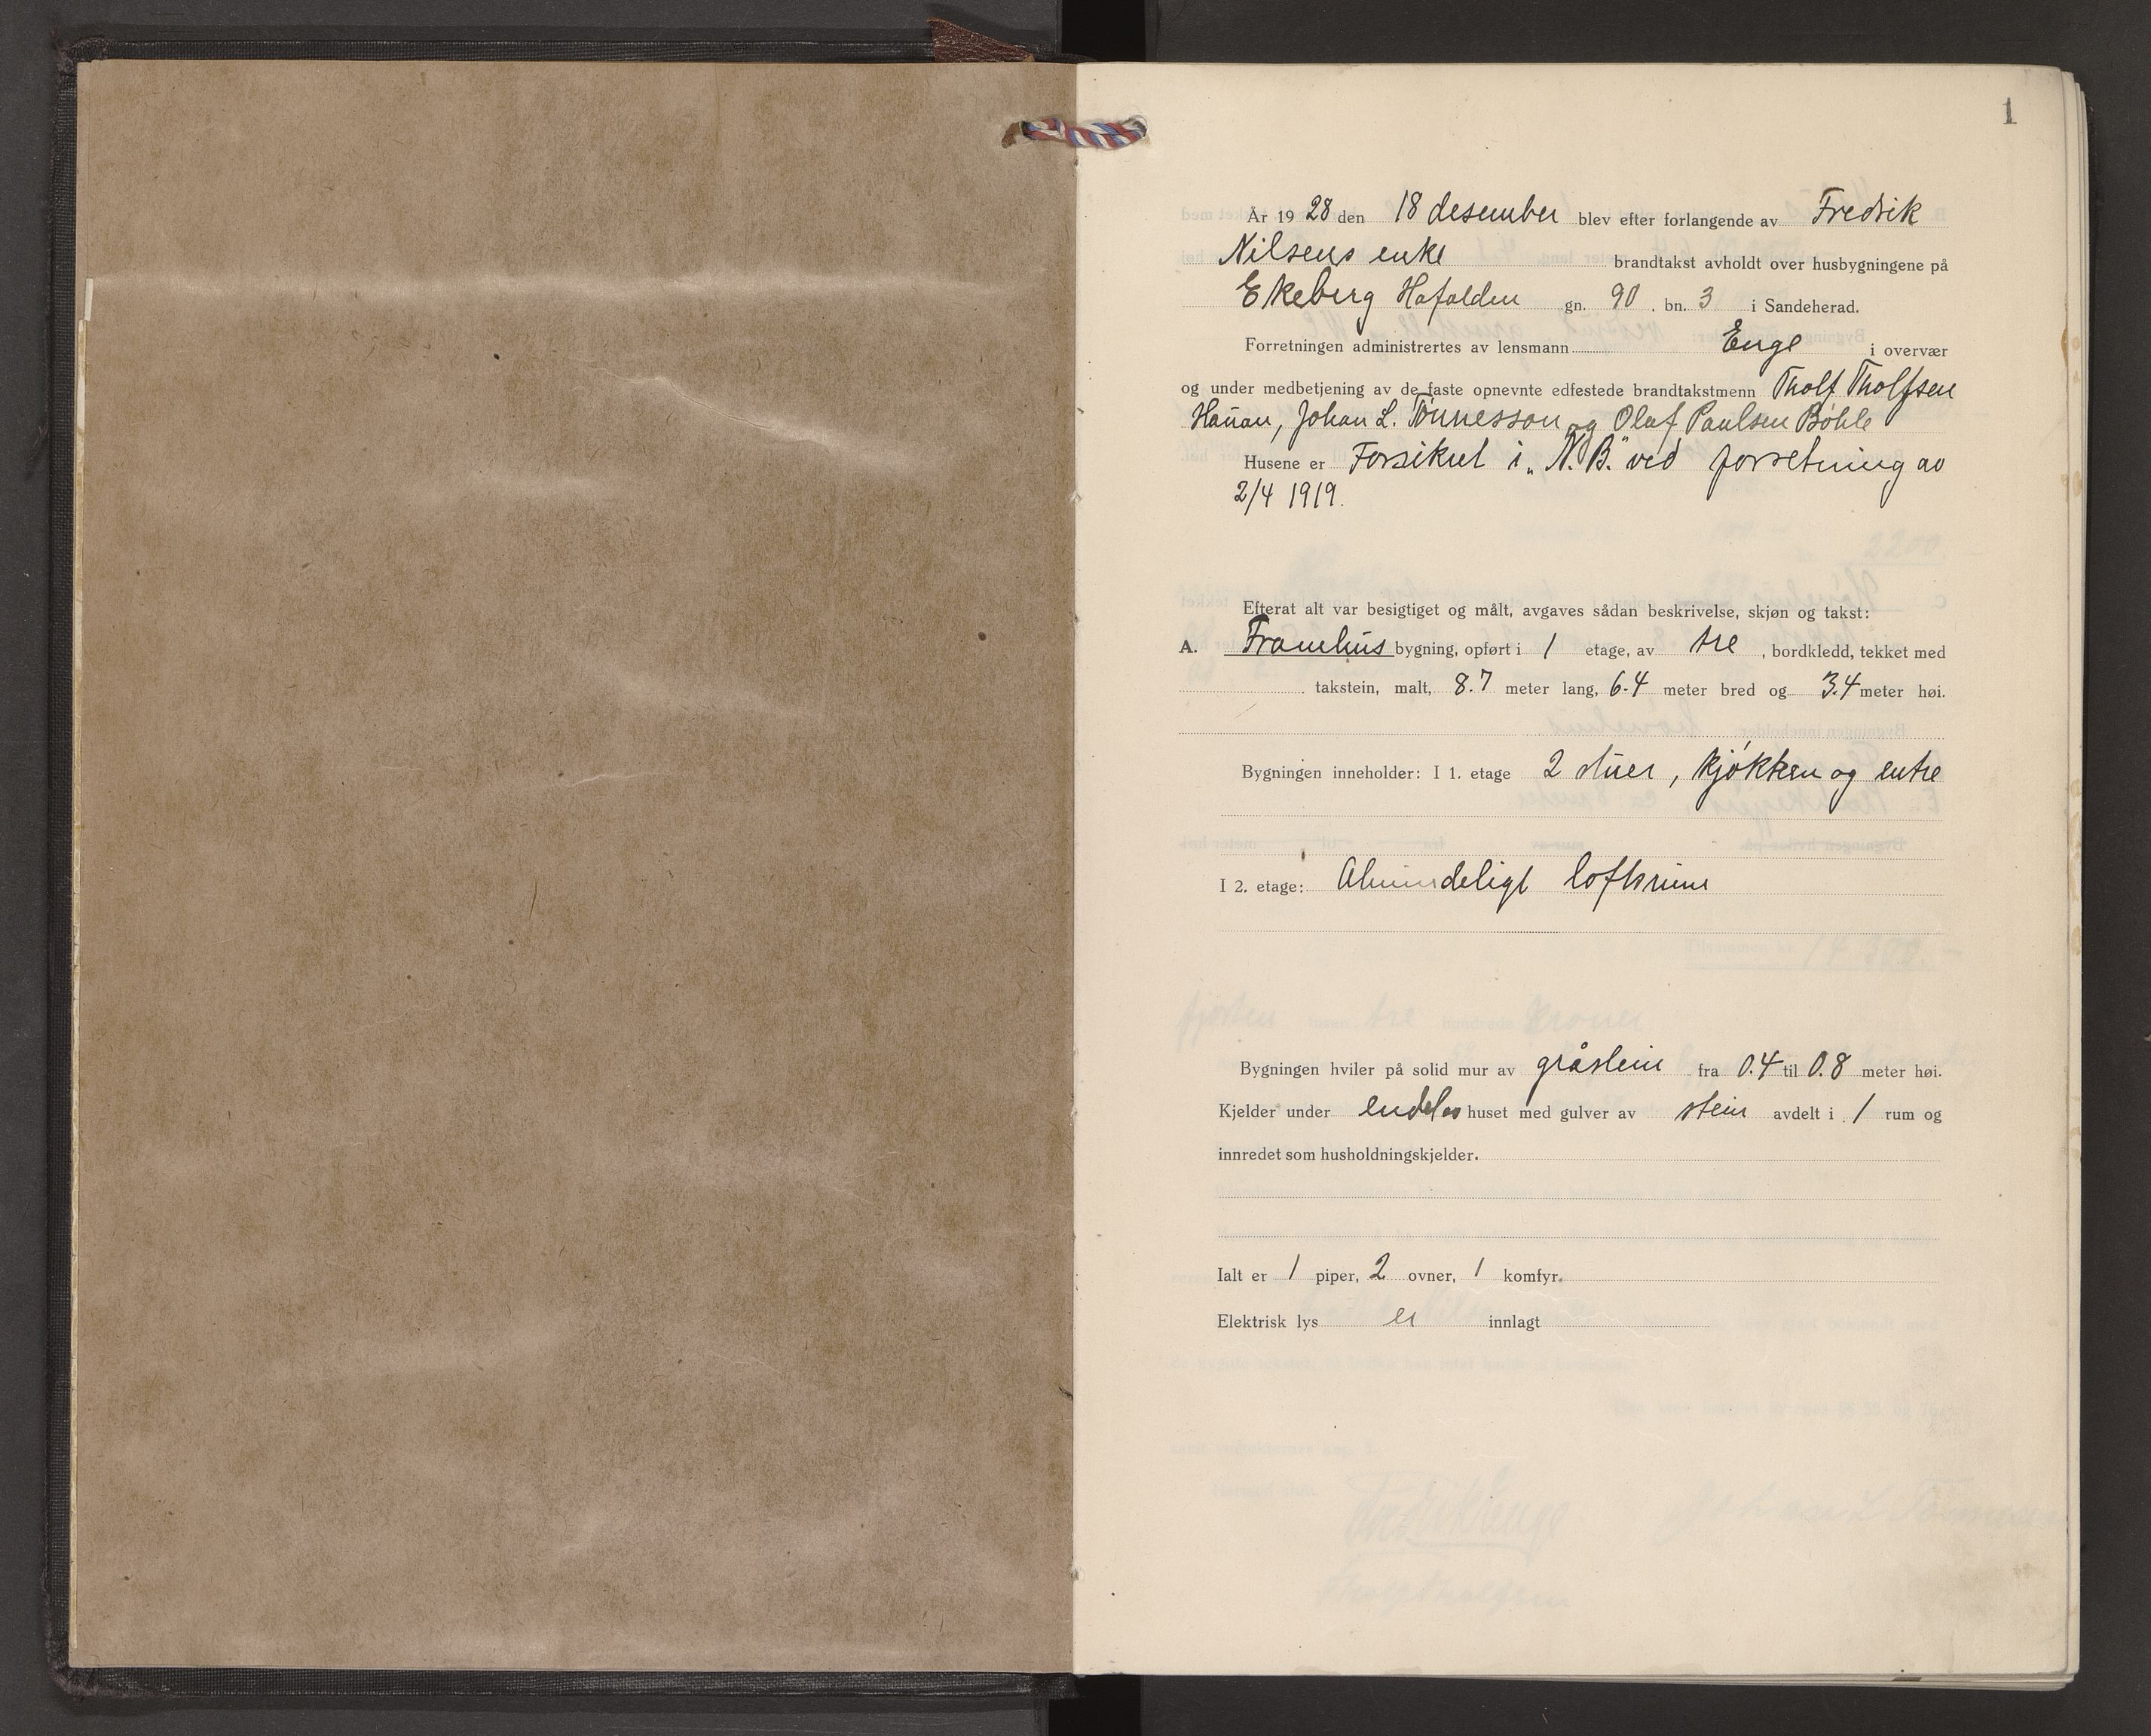 1
År 1928 den 18 desember blev efter forlangende av Fredrik
Nilsens enke brandtakst avholdt over husbygningene på
Ekeberg Hafalden gn. 90. bn. 3 i Sandeherad.
Forretningen administrertes av lensmann Enge i overvær
og under medbetjening av de faste opnevnte edfestede brandtakstmenn Tholf Tholfsen
Haũan, Johan L. Tønnesson og Olaf Paulsen Bøhle
Husene er Forsikret i „N.B." ved forretning av
2/4 1919.
Efterat alt var besigtiget og målt, avgaves sådan beskrivelse, skjøn og takst:
A. Framhus bygning, opført i 1 etage, av tre, bordkledd, tekket med
takstein, malt, 8.7 meter lang, 6.4 meter bred og 3.4 meter høi.
Bygningen inneholder: I 1. etage 2 stuer, kjøkken og entre
I 2. etage: Almindeligt loftsrum
Bygningen hviler på solid mur av gråstein fra 0.4 til 0.8 meter høi.
Kjelder under endel av huset med gulver av stein avdelt i 1 rum og
innredet som husholdningskjelder.
Ialt er 1 piper, 2 ovner, 1 komfyr.
Elektrisk lys er innlagt